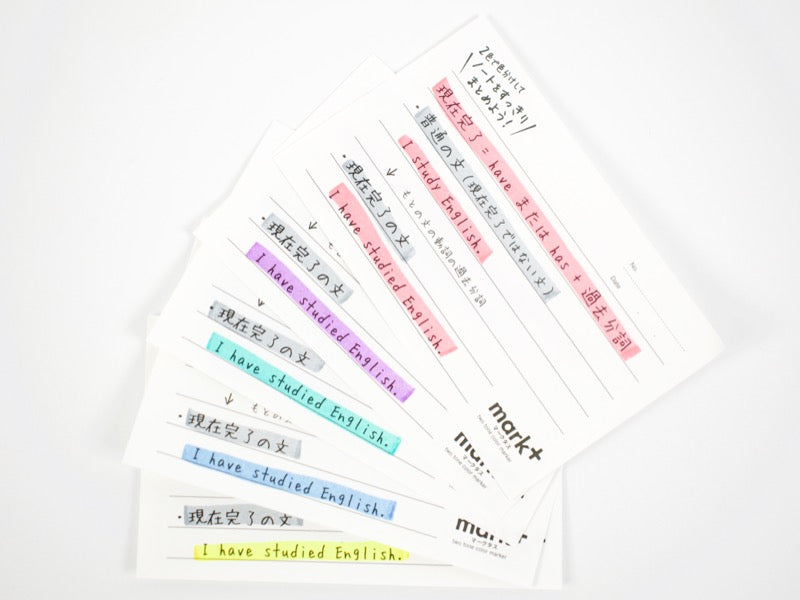 2色で色分けして
ノートをすっきり
まとめよう！
No.
Date
現在完了 = have または has + 過去分詞
・普通の文（現在完了ではない文）
I study English.
↓ もとの文の動詞の過去分詞
・現在完了の文
I have studied English.
mark+
マークタス
two tone color marker
↓ も
・現在完了の文
I have studied English.
マークタス
two tone color marker
↓
・現在完了の文
I have studied English.
↓ もとの
・現在完了の文
I have studied English.
マークタス
two tone color marker
・現在完了の文
I have studied English.